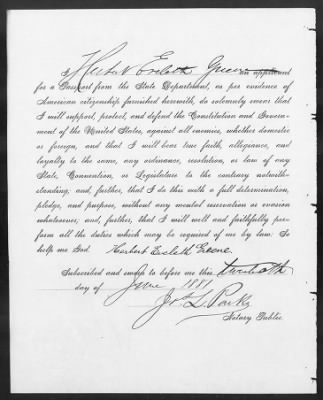 I, Herbert Eveleth Greene an applicant
for a Passport from the State Department, as per evidence of
American citizenship furnished herewith, do solemnly swear that
I will support, protect, and defend the Constitution and Govern-
ment of the United States, against all enemies, whether domestic
or foreign, and that I will bear true faith, allegiance, and
loyalty to the same, any ordinance, resolution, or law of any
State, Convention, or Legislature to the contrary notwith-
standing; and, further, that I do this with a full determination,
pledge, and purpose, without any mental reservation or evasion
whatsoever; and, further, that I will well and faithfully per-
form all the duties which may be required of me by law: So
help me God. Herbert Eveleth Greene.
Subscribed and sworn to before me this twentieth
day of June 1881
Jos L. Parks
Notary Public